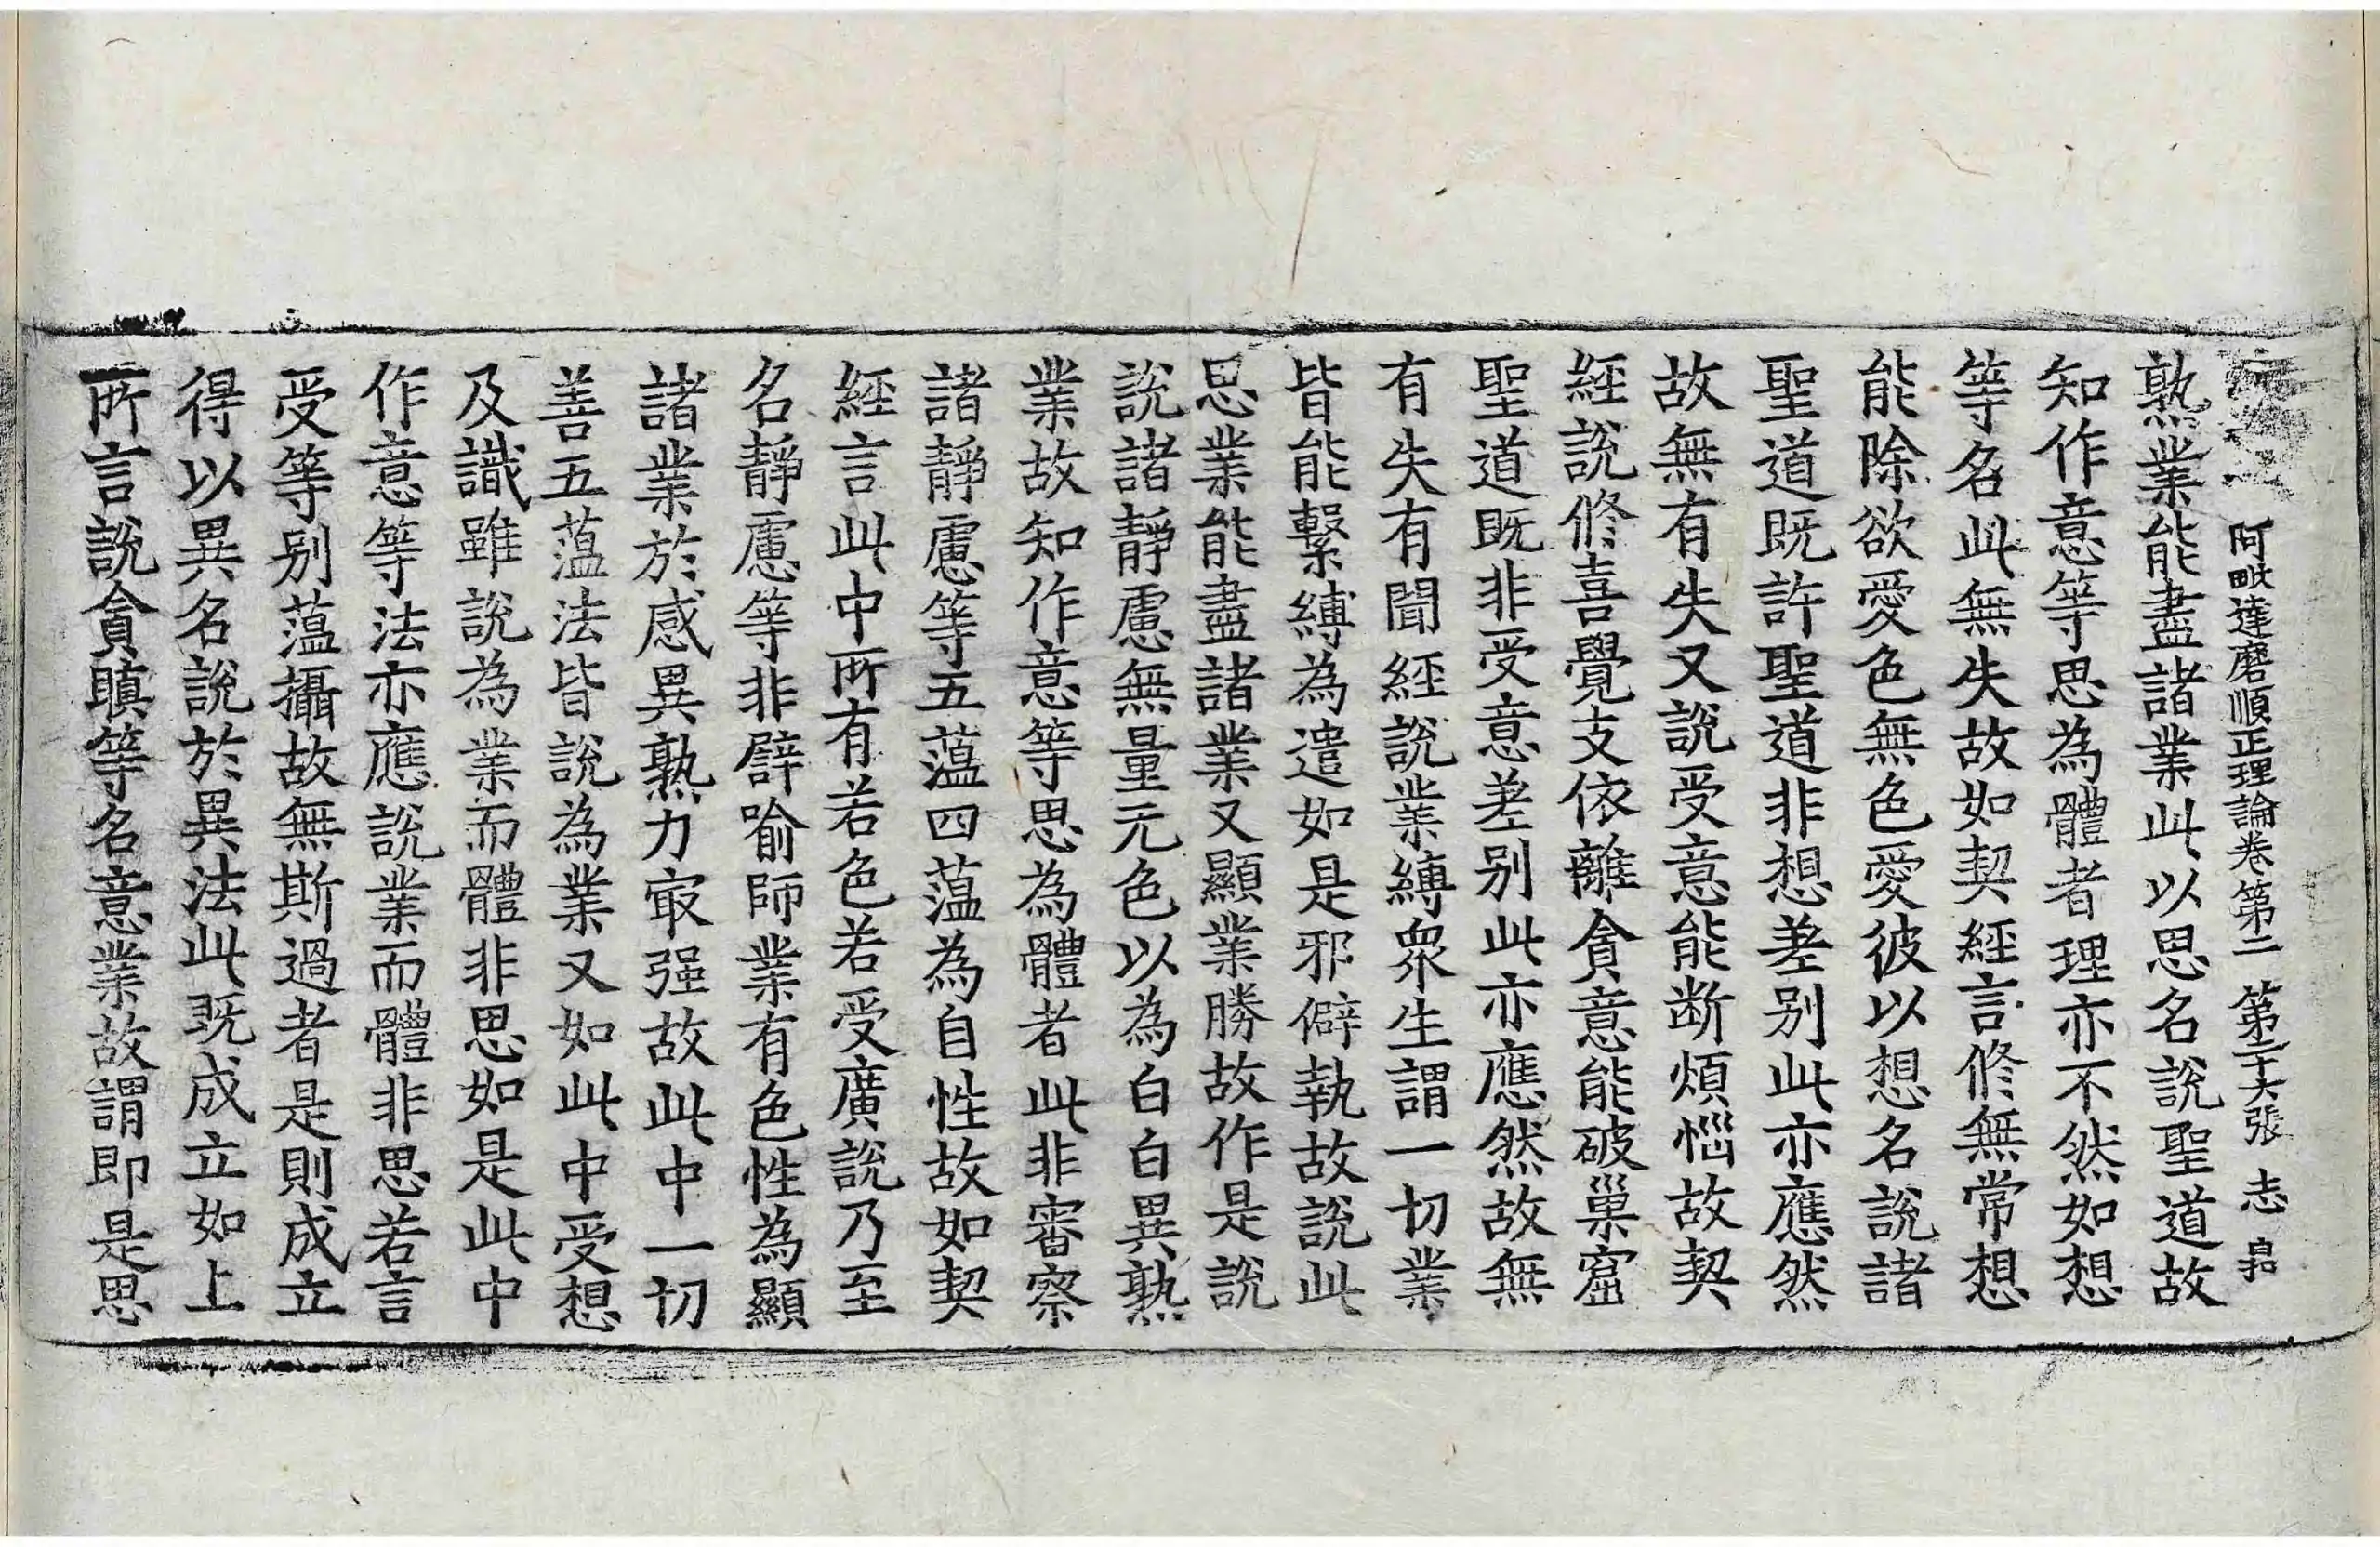 阿毗達磨順正理論卷第二 第二十六張 志
熟業能盡諸業此以思名說聖道故
知作意等思為體者理亦不然如想
等名此無失故如契經言修無常想
能除欲愛色無色愛彼以想名說諸
聖道既許聖道非想差別此亦應然
故無有失又說受意能断煩惱故契
經說修喜覺支依離貪意能破巢窟
聖道既非受意差別此亦應然故無
有失有聞經說業縛衆生謂一切業
皆能繫縛為遣如是邪僻執故說此
思業能盡諸業又顯業勝故作是說
說諸靜慮無量无色以為白白異熟
業故知作意等思為體者此非審察
諸靜慮等五蕰四蕰為自性故如契
經言此中所有若色若受廣說乃至
名靜慮等非譬喻師業有色性為顯
諸業於感異熟力㝡强故此中一切
善五蕰法皆說為業又如此中受想
及識雖說為業而體非思如是此中
作意等法亦應說業而體非思若言
受等別蕰攝故無斯過者是則成立
得以異名說於異法此既成立如上
所言說貪瞋等名意業故謂即是思